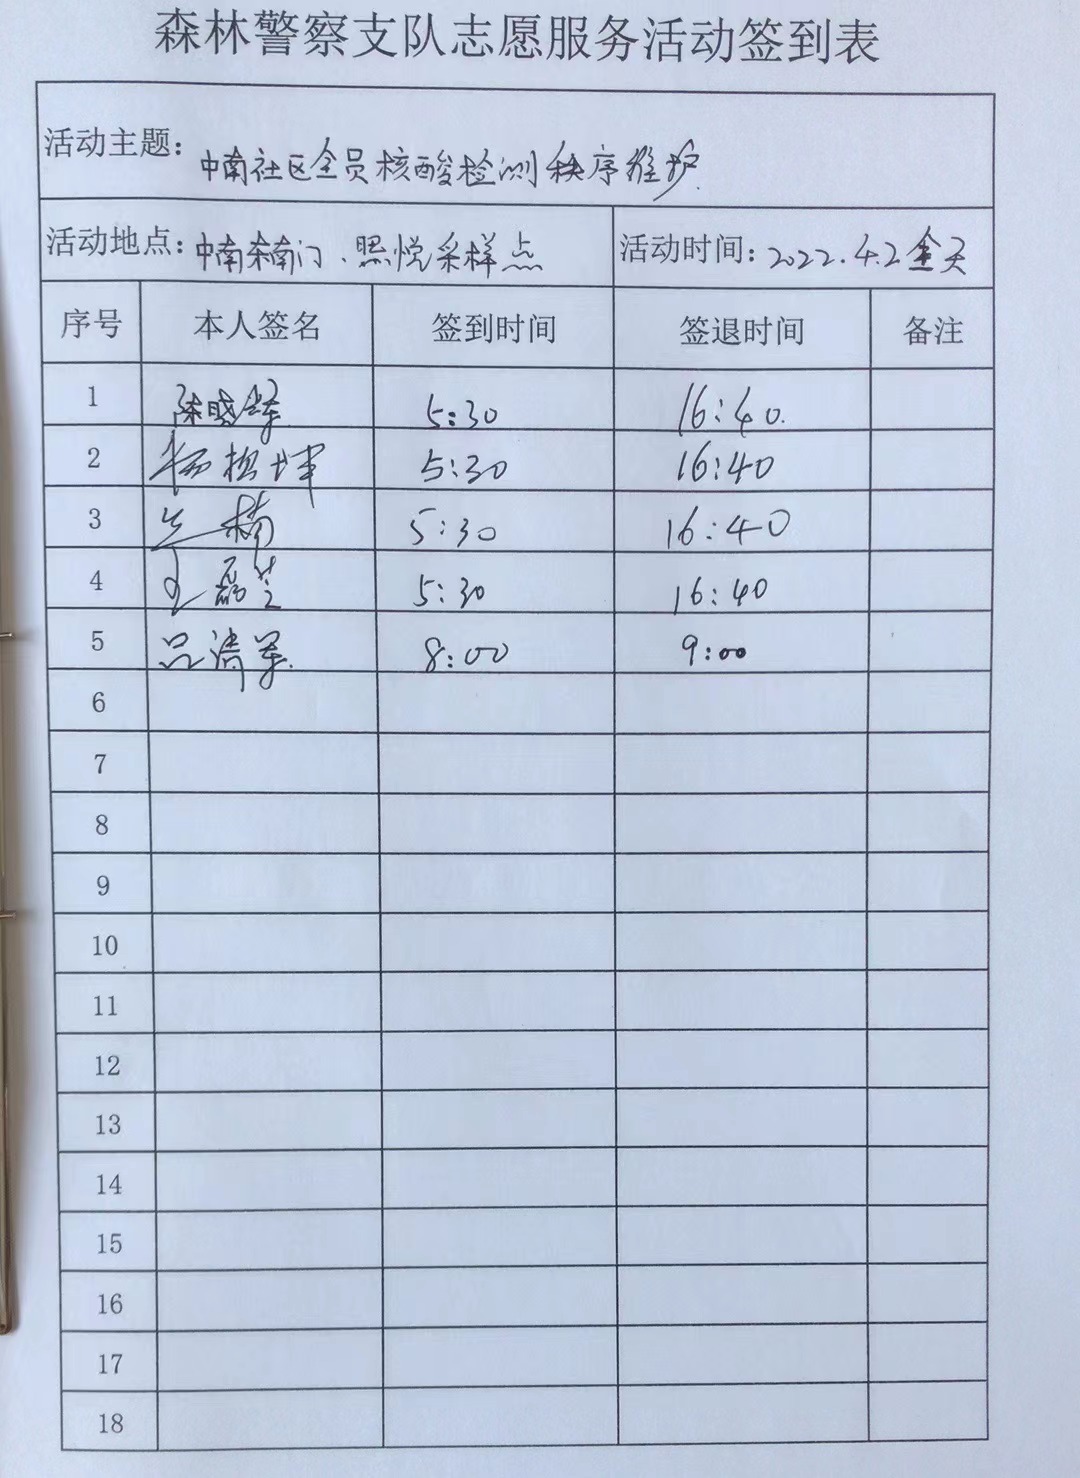 森林警察支队志愿服务活动签到表
活动主题: 中南社区全员核酸检测秩序维护
活动地点: 中南 南门、熙悦采样点 活动时间: 2022.4.2全天
序号 本人签名 签到时间 签退时间 备注
1 陈晓 5:30 16:40
2 杨松坤 5:30 16:40
3 兰楠 5:30 16:40
4 王 5:30 16:40
5 吕清军 8:00 9:00
6
7
8
9
10
11
12
13
14
15
16
17
18